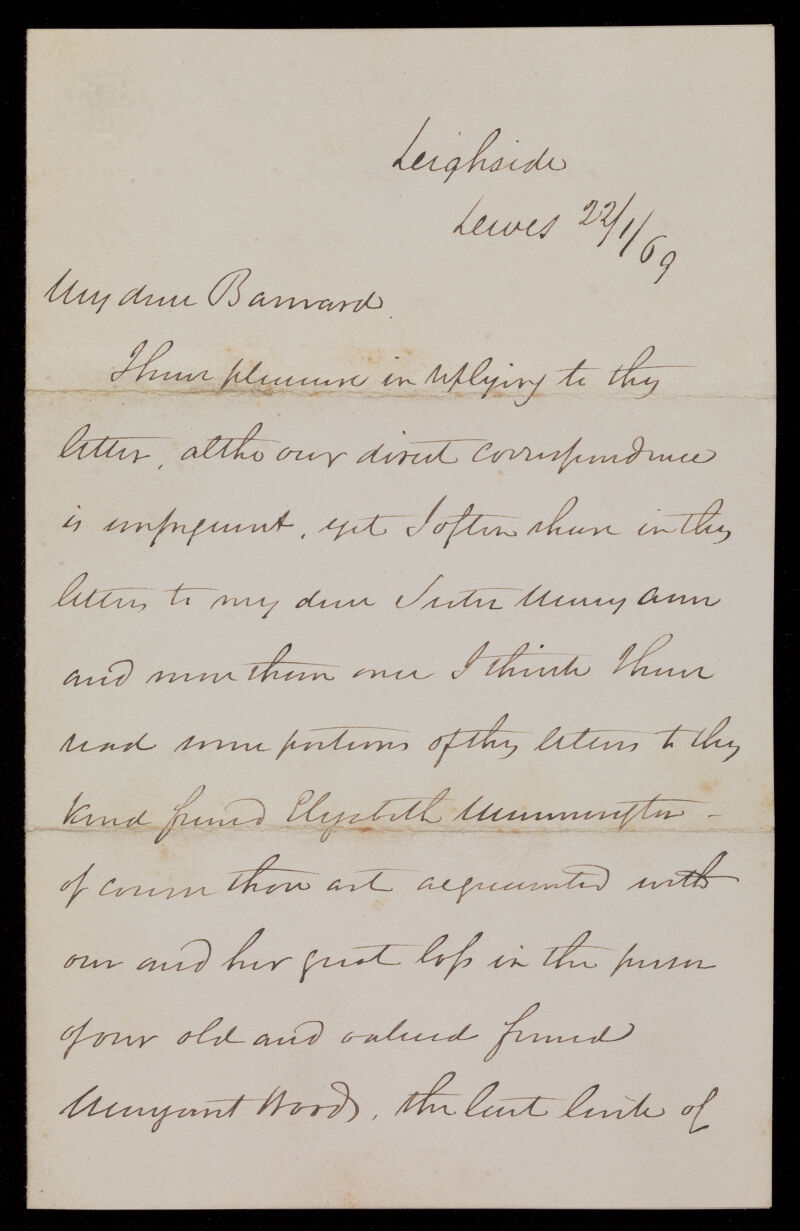 Leighside
Lewes 22/1/69
My dear Barnard.
I have pleasure in replying to thy
letter, altho our direct correspondence
is infrequent, yet I often share in thy
letters to my dear Sister Mary ann
and more than once I think I have
read some portions of thy letters to thy
kind friend Elizabeth Mannington -
of course thou art acquainted with
our and her great loss in the person
of our old and valued friend
Margaret Woods, the last link of